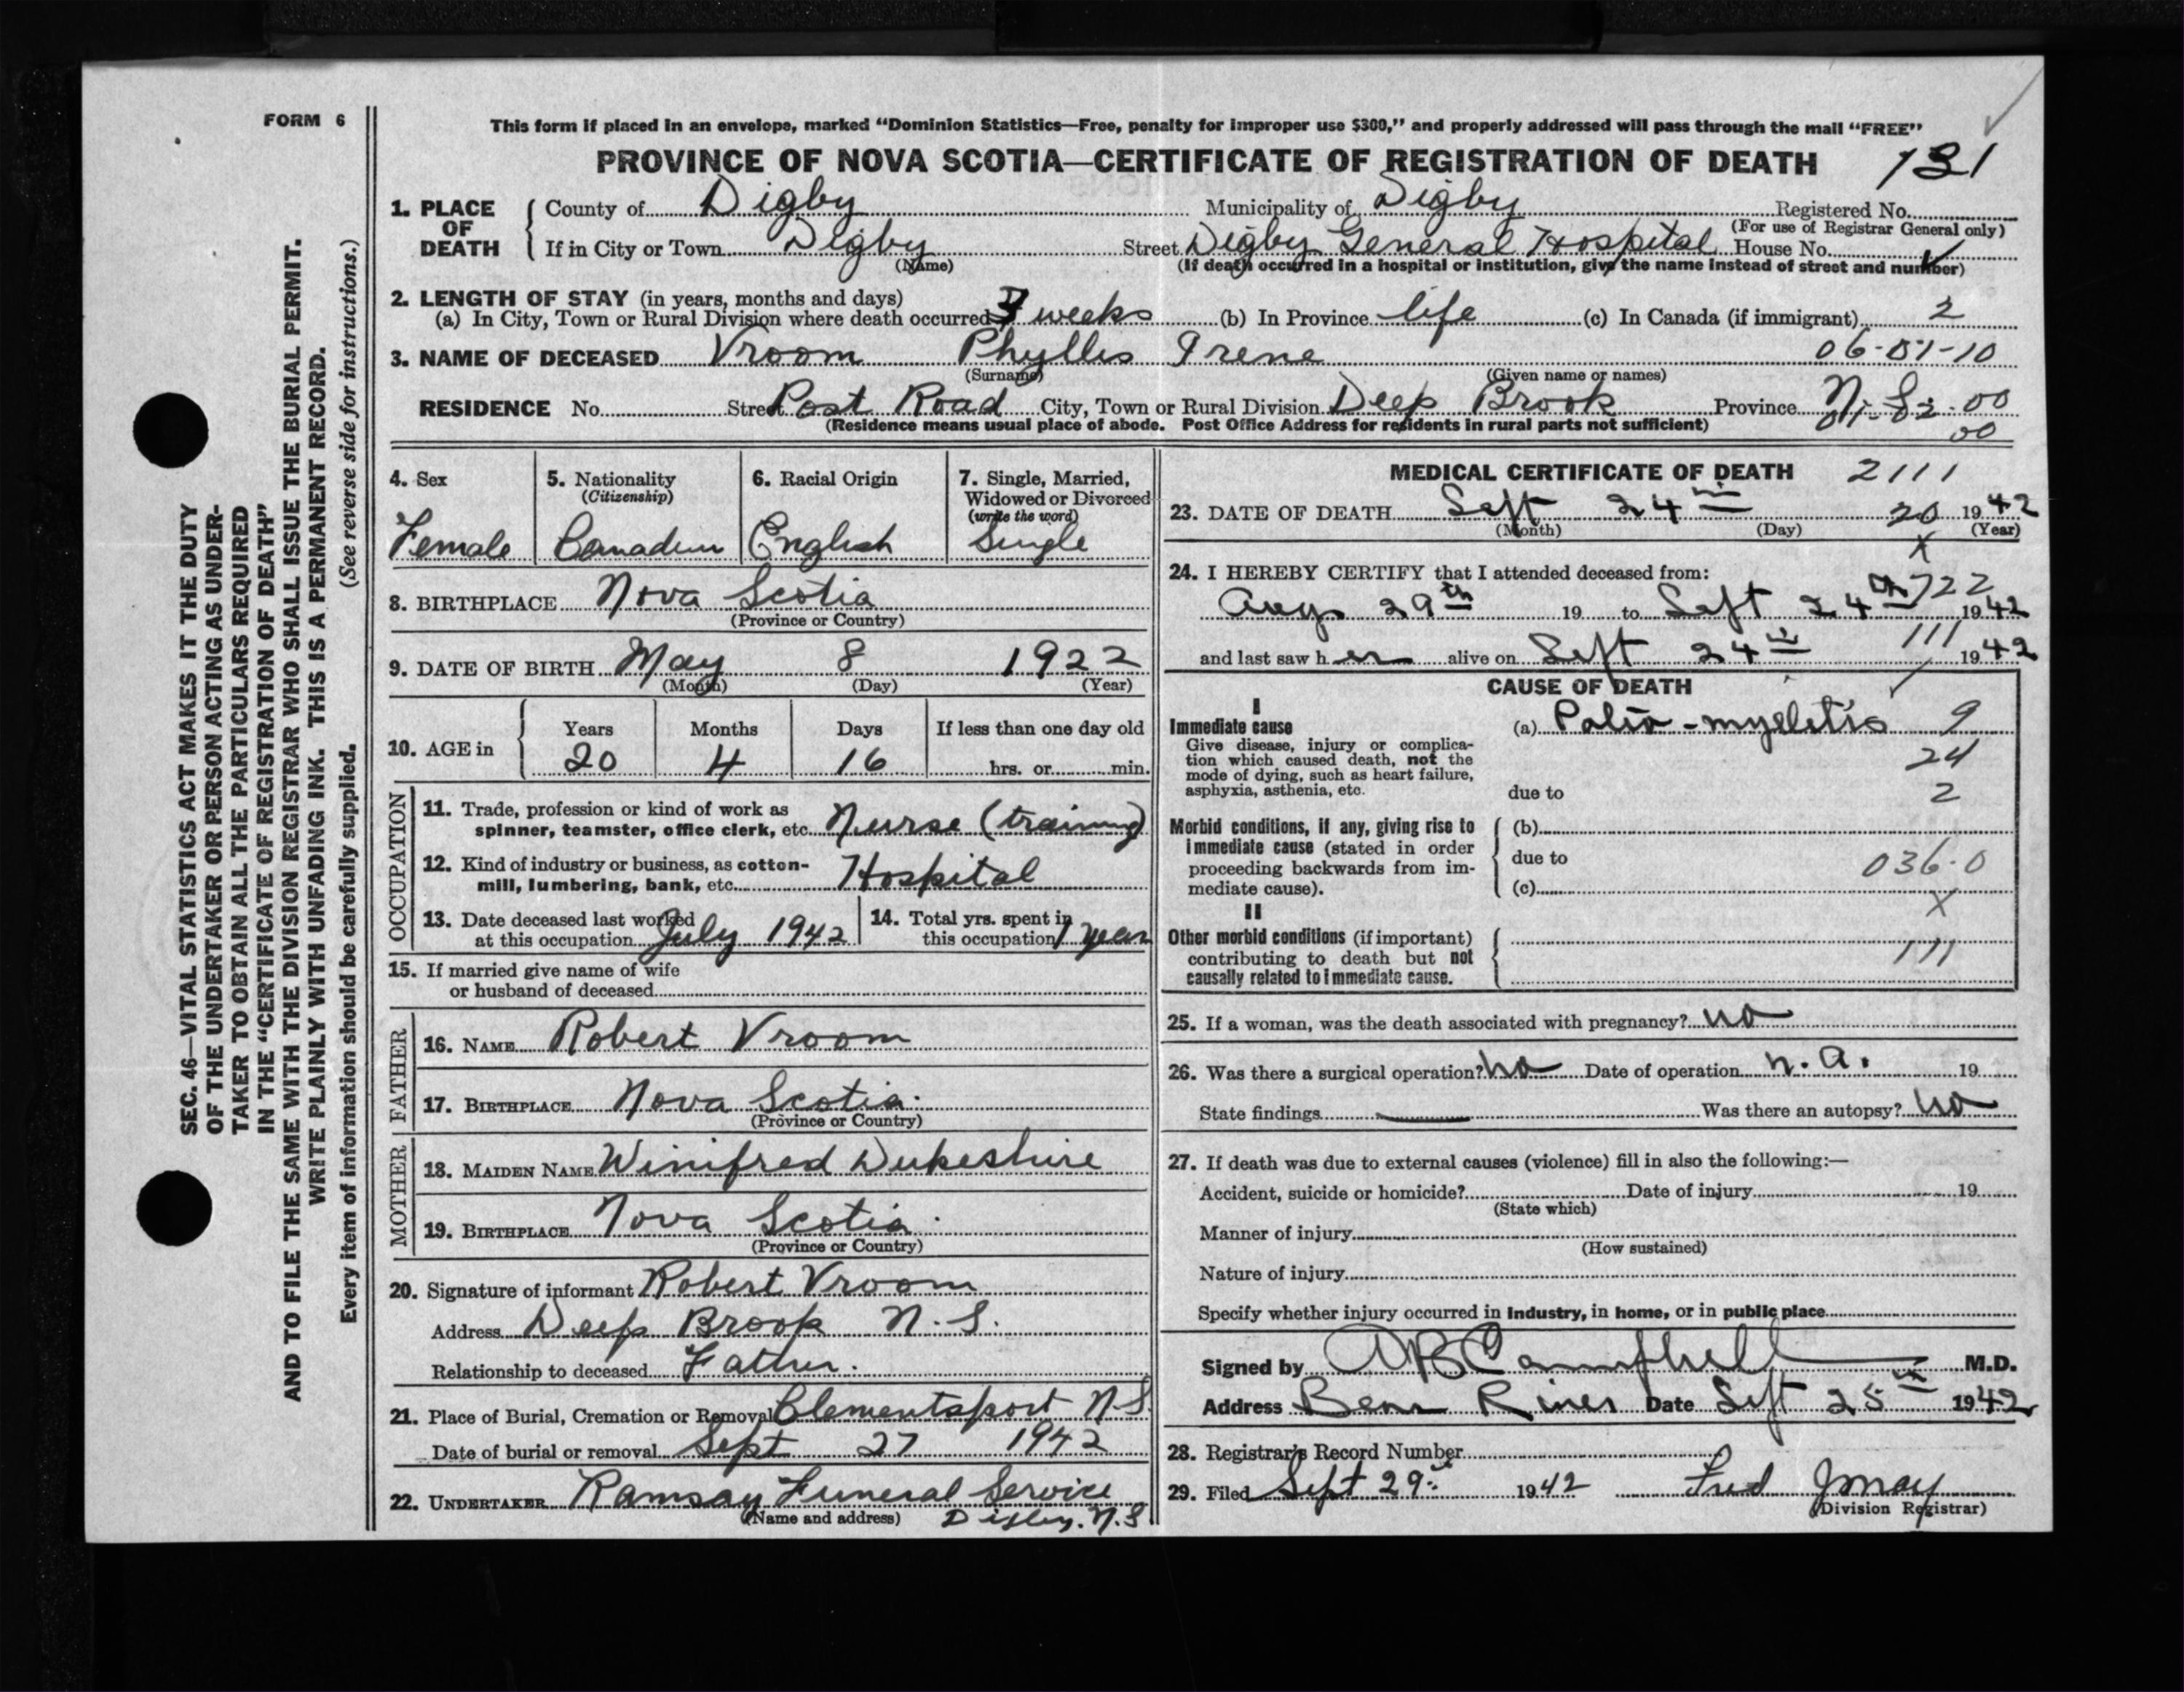 FORM 6
This form if placed in an envelope, marked “Dominion Statistics—Free, penalty for improper use $300,” and properly addressed will pass through the mail “FREE”
PROVINCE OF NOVA SCOTIA—CERTIFICATE OF REGISTRATION OF DEATH 131
1. PLACE OF DEATH County of Digby Municipality of Digby Registered No.
(For use of Registrar General only)
If in City or Town Digby Street Digby General Hospital House No.
(Name) (If death occurred in a hospital or institution, give the name instead of street and number)
2. LENGTH OF STAY (in years, months and days)
(a) In City, Town or Rural Division where death occurred 3 weeks (b) In Province life (c) In Canada (if immigrant) 2
3. NAME OF DECEASED Vroom Phyllis Irene 06-01-10
(Surname) (Given name or names)
RESIDENCE No. Street Post Road City, Town or Rural Division Deep Brook Province N.S. 00
(Residence means usual place of abode. Post Office Address for residents in rural parts not sufficient) 00
4. Sex 5. Nationality 6. Racial Origin 7. Single, Married,
(Citizenship) Widowed or Divorced
(write the word)
Female Canadian English Single
8. BIRTHPLACE Nova Scotia
(Province or Country)
9. DATE OF BIRTH May 8 1922
(Month) (Day) (Year)
10. AGE in Years Months Days If less than one day old
20 4 16 hrs. or min.
OCCUPATION
11. Trade, profession or kind of work as
spinner, teamster, office clerk, etc. Nurse (training)
12. Kind of industry or business, as cotton-
mill, lumbering, bank, etc. Hospital
13. Date deceased last worked
at this occupation July 1942
14. Total yrs. spent in
this occupation 1 year
15. If married give name of wife
or husband of deceased
FATHER
16. NAME Robert Vroom
17. BIRTHPLACE Nova Scotia.
(Province or Country)
MOTHER
18. MAIDEN NAME Winifred Dukeshire
19. BIRTHPLACE Nova Scotia.
(Province or Country)
20. Signature of informant Robert Vroom
Address Deep Brook N.S.
Relationship to deceased Father.
21. Place of Burial, Cremation or Removal Clementsport N.S.
Date of burial or removal Sept 27 1942
22. UNDERTAKER Ramsay Funeral Service
(Name and address) Digby. N.S.
MEDICAL CERTIFICATE OF DEATH 2111
23. DATE OF DEATH Sept 24th 20 1942
(Month) (Day) (Year)
X
24. I HEREBY CERTIFY that I attended deceased from:
722
Aug 29th 19 to Sept 24th 1942
111
and last saw her alive on Sept 24th 1942
CAUSE OF DEATH
I
Immediate cause (a) Polio-myelitis 9
Give disease, injury or complica-
tion which caused death, not the
mode of dying, such as heart failure,
asphyxia, asthenia, etc.
24
due to 2
Morbid conditions, if any, giving rise to
immediate cause (stated in order
proceeding backwards from im-
mediate cause).
(b)
due to 036.0
(c)
X
II
Other morbid conditions (if important)
contributing to death but not
causally related to immediate cause.
111
25. If a woman, was the death associated with pregnancy? no
26. Was there a surgical operation? no Date of operation n.a. 19
State findings Was there an autopsy? no
27. If death was due to external causes (violence) fill in also the following:—
Accident, suicide or homicide? Date of injury 19
(State which)
Manner of injury
(How sustained)
Nature of injury
Specify whether injury occurred in Industry, in home, or in public place
Signed by AB Campbell M.D.
Address Bear River Date Sept 25th 1942
28. Registrar's Record Number
29. Filed Sept 29th 1942 Fred Jmay
(Division Registrar)
SEC. 46—VITAL STATISTICS ACT MAKES IT THE DUTY
OF THE UNDERTAKER OR PERSON ACTING AS UNDER-
TAKER TO OBTAIN ALL THE PARTICULARS REQUIRED
IN THE “CERTIFICATE OF REGISTRATION OF DEATH”
AND TO FILE THE SAME WITH THE DIVISION REGISTRAR WHO SHALL ISSUE THE BURIAL PERMIT.
WRITE PLAINLY WITH UNFADING INK. THIS IS A PERMANENT RECORD.
Every item of information should be carefully supplied. (See reverse side for instructions.)